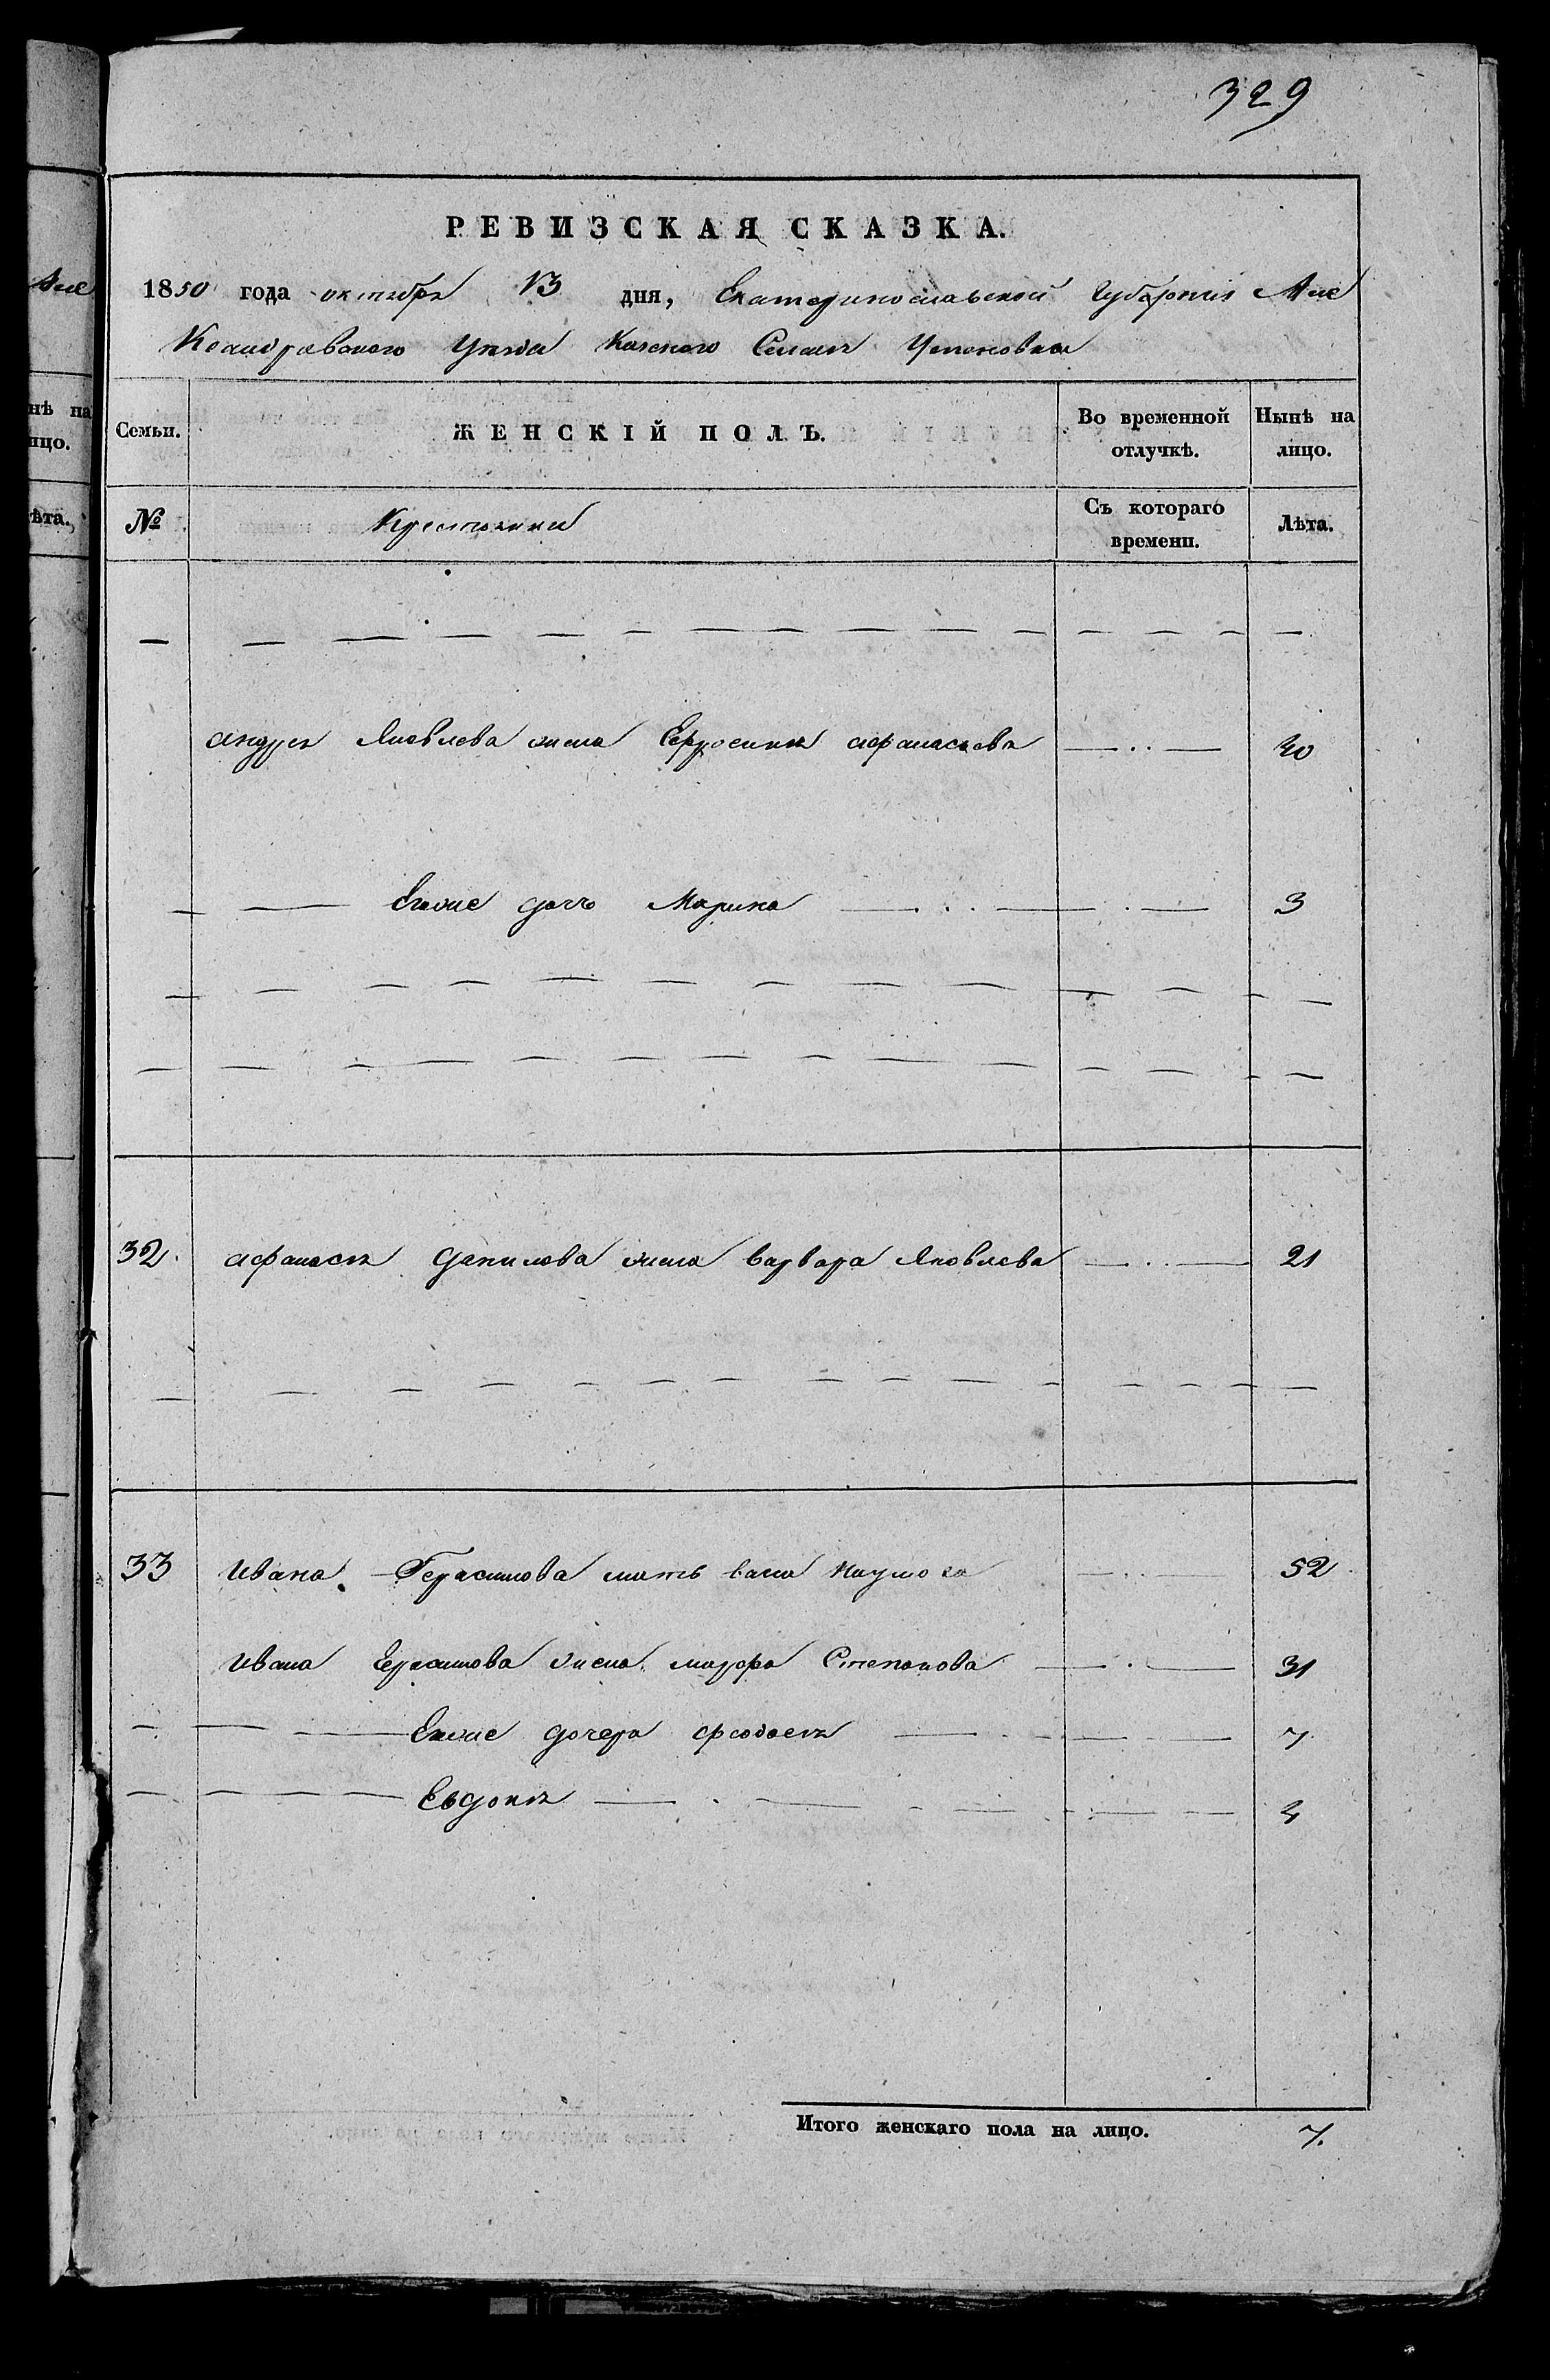 329
РЕВИЗСКАЯ СКАЗКА.
1850 года октября 13 дня, Екатеринославской Губернии Але
Ксандровского Уезда Казеного Селенія
Семьи. ЖЕНСКІЙ ПОЛЪ. Во временной отлучкѣ. Нынѣ на лицо.
№ Крестьянки Съ котораго времени. Лѣта.
андрея Яковлева жена Ефросиния афанасьева 30
Егоже дочь Марина 3
32. афанасия данилова жена варвара Яковлева 21
33 Ивана Герасимова мать васа Наумова 52
Ивана Герасимова жена марфа Степанова 31
Егоже дочери феодосия 7
Евдокия 4
Итого женскаго пола на лицо. 7.